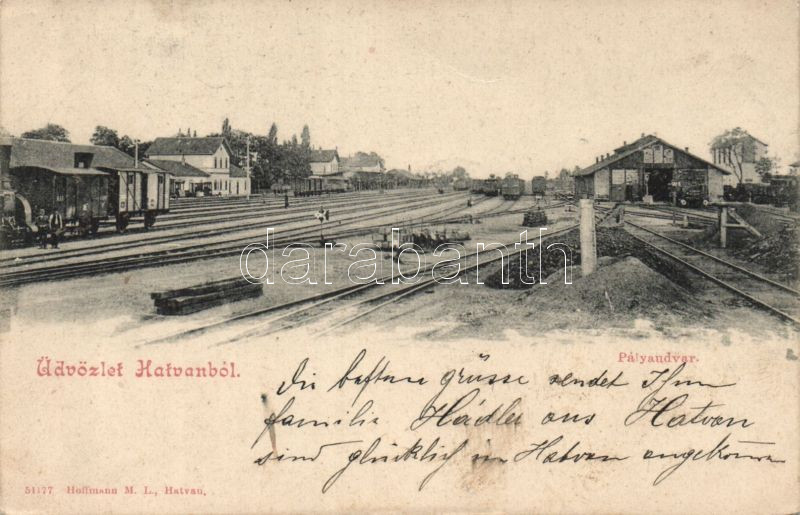 darabanth
Üdvözlet Hatvanból.
Pályaudvar.
Die besten grüsse sendet Ihnen
familie Hädler aus Hatvan
sind glücklich in Hatvan angekommen
51177 Hoffmann M. L., Hatvan.